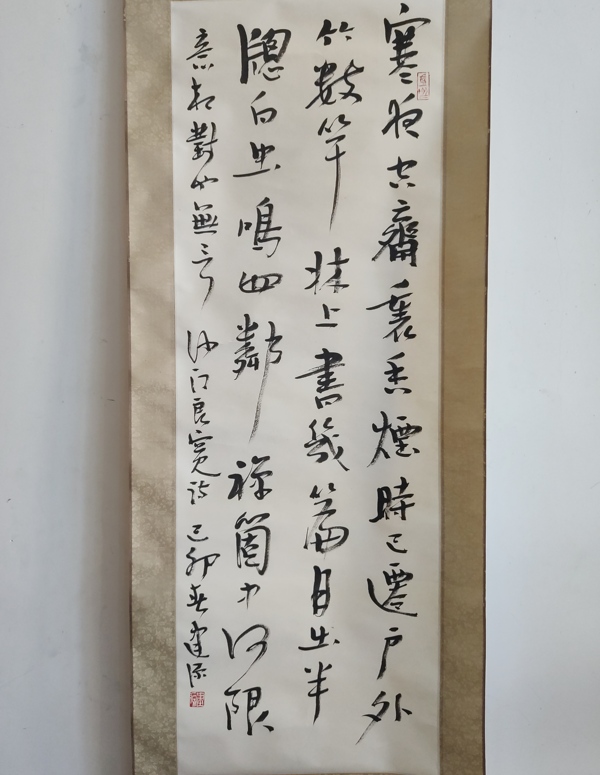 寒夜空齋裏香煙時已遷戶外
竹數竿牀上書幾篇月出半
牕白虫鳴四鄰禪箇中何限
意相對也無言 沙門良寬詩 己卯春建